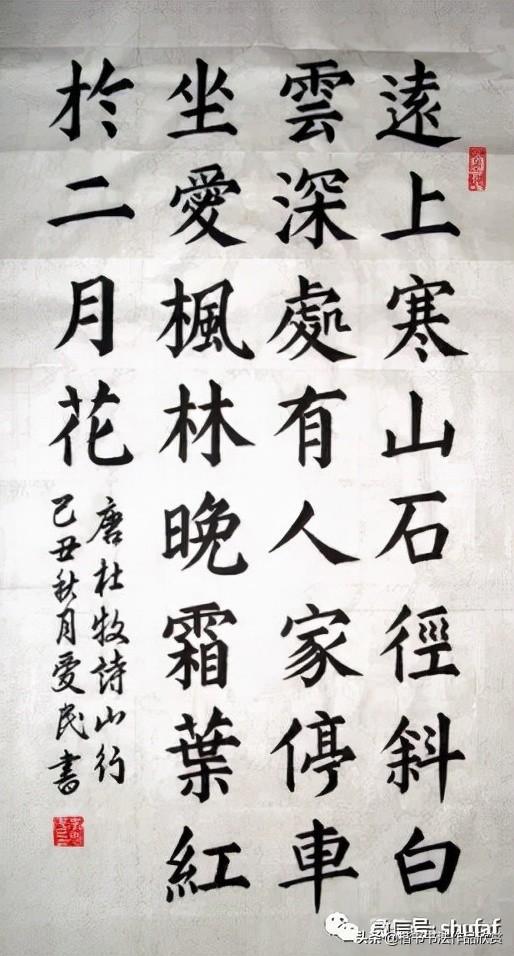 遠上寒山石徑斜白
雲深處有人家停車
坐愛楓林晚霜葉紅
於二月花
唐杜牧詩山行
己丑秋月愛民書
微信号: shufaf
头条@楷书书法作品欣赏